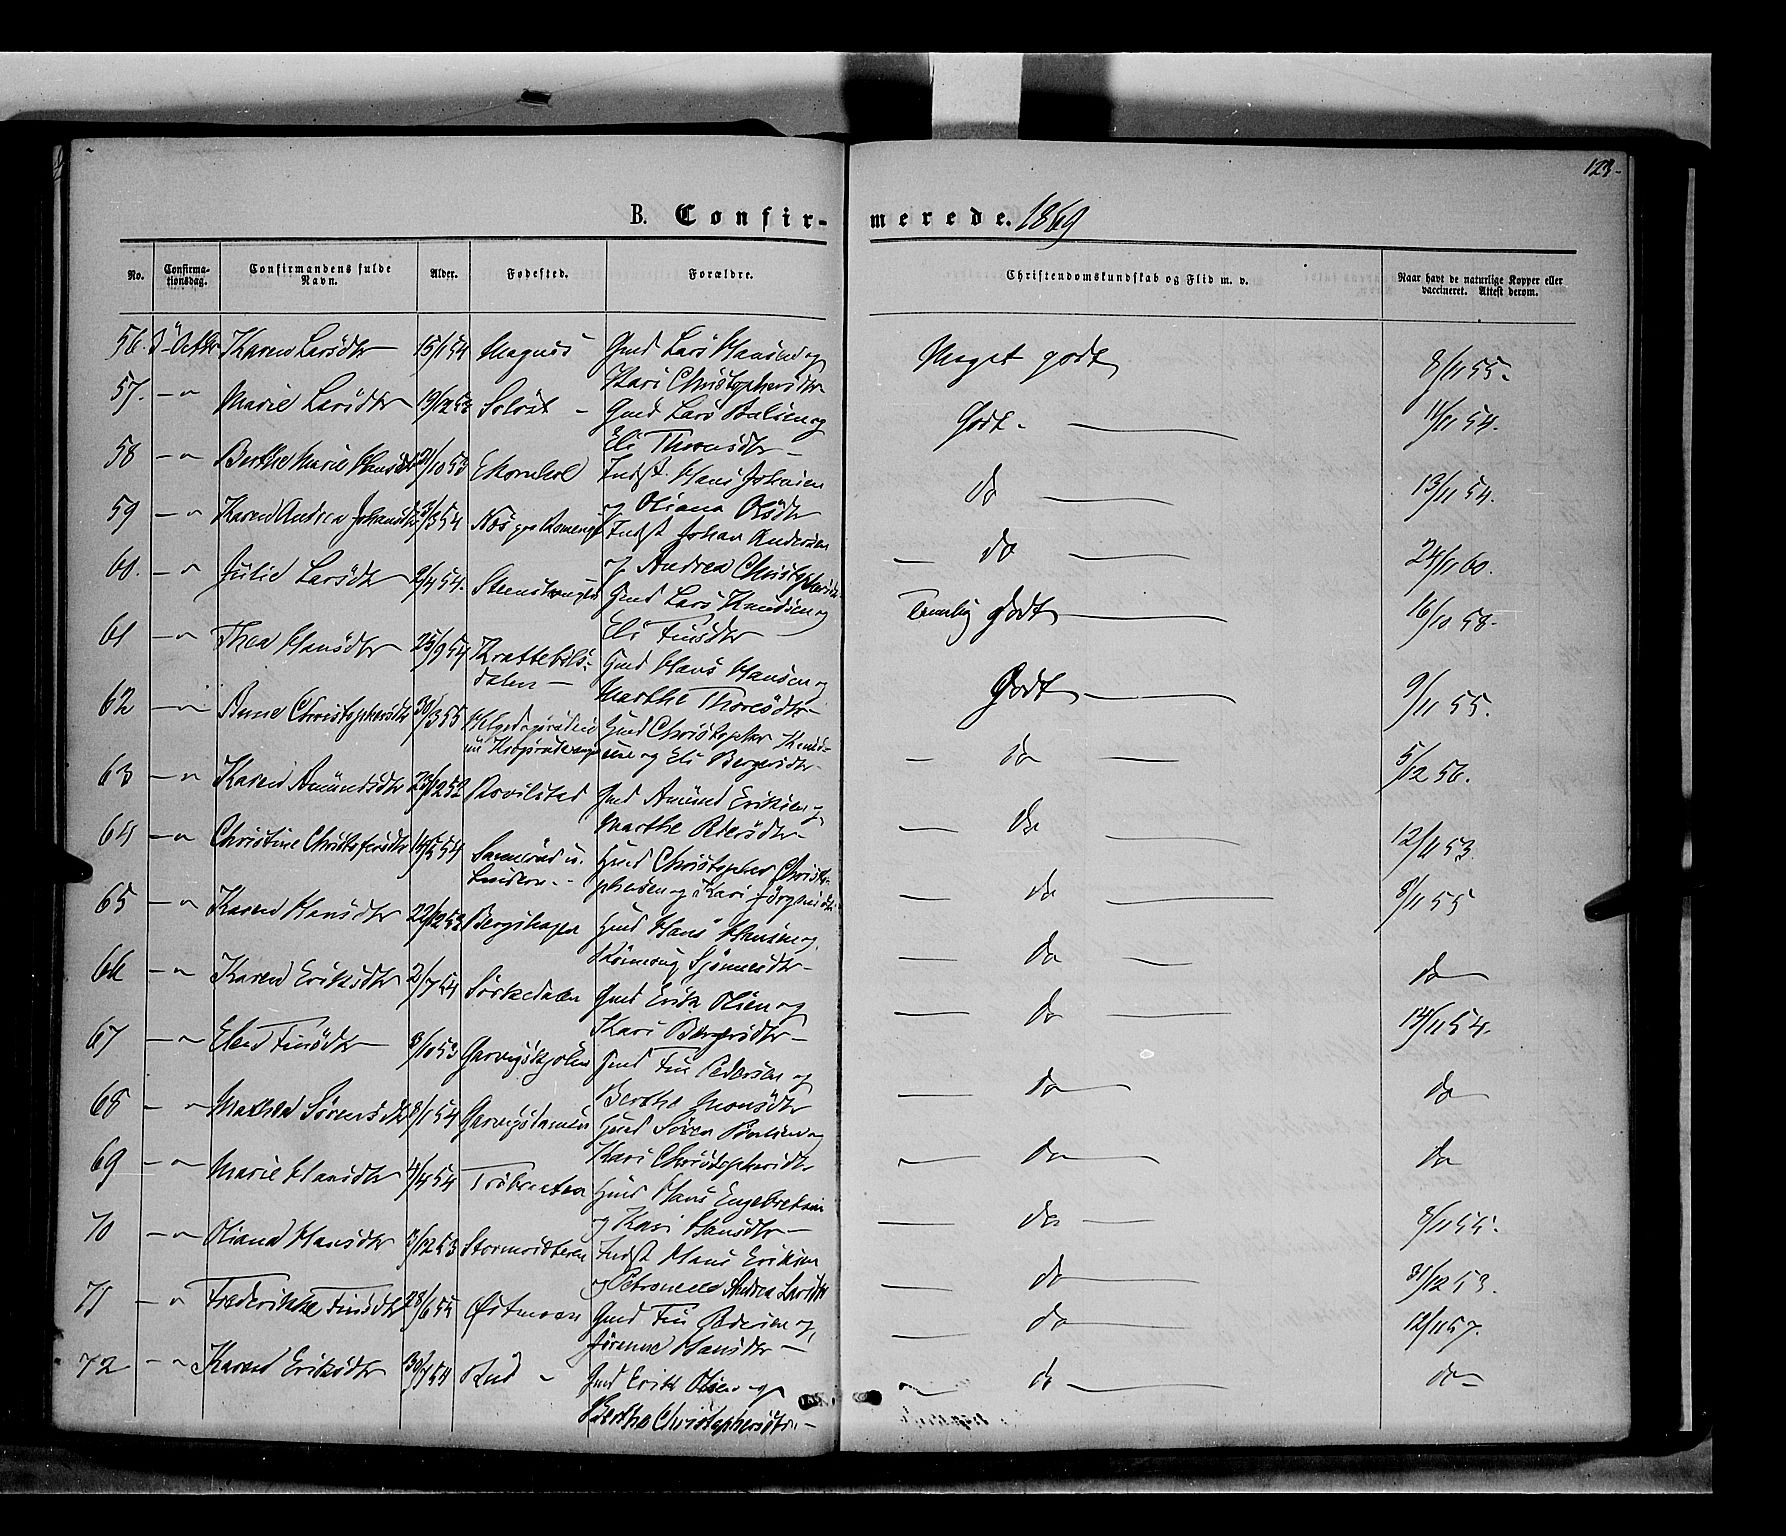 123.
B. Confir-
merede. 1869
No.
Confirma-
tionsdag.
Confirmandens fulde
Navn.
Alder.
Fødested.
Forældre.
Christendomskundskab og Flid m. v.
Naar havt de naturlige Kopper eller
vaccineret. Attest derom.
56. 3 Octbr Karen Larsdtr 15/1 54 Magnus Gmd Lars Hansen og Meget godt 8/11 55.
Kari Christophersdtr
57. — " Marie Larsdtr 19/12 53 Gmd Lars og Godt. 11/11 54.
Eli Thoresdtr
58 — " Berthe Marie Hansdtr 21/10 53 Ekornhol Indst Hans Johnsen do 13/11 54.
og Oliana Olsdtr
59 — " Karen Andrea Johansdtr 3/3 54 Næs paa Romerige Indst Johan Andersen do 24/11 60.
og Andrea Christophersdtr
60. — " Julie Larsdtr 2/4 54. Gmd Lars Knudsen og Temlig godt 16/10 58.
Eli Finsdtr
61 — " Thea Hansdtr 25/9 54 Gmd Hans Hansen og Godt 9/11 55.
dalen Marthe Thoresdtr
62 — " Anne Christophersdtr 30/3 55 Gmd Christopher Knud- do 5/12 56.
sen og Eli Bergersdtr
63 — " Karen Amundsdtr 23/12 52 Gmd Amund Eriksen og do 12/11 53.
Marthe Pedersdtr
64 — " Christine Christofersdtr 14/5 54 Gmd Christopher Christo- do 8/11 55
phersen og Kari Jörgensdtr
65 — " Karen Hansdtr 22/12 53 Bergshagen Gmd Hans Hansen og do do
66 — " Karen Eriksdtr 2/7 54 Sörkedalen Gmd Erik Olsen og do 14/11 54.
Kari Bergersdtr
67 — " Elen Finsdtr 3/10 53 Garvigskjolen Gmd Fin Pedersen og do do
Berthe Monsdtr
68 — " Mathea Sørensdtr 8/1 54 Gmd Søren og do do
Kari Christophersdtr
69 — " Marie Hansdtr 4/4 54 Gmd Hans Engebretsen do 8/11 55.
og Kari Hansdtr
70 — " Oliana Hansdtr 3/12 53 Indst Hans Eriksen do 31/12 53.
og Petronelle Andrea Larsdtr
71 — " Frederikke Finsdtr 28/6 54 Østmoen Gmd Fin Pedersen og do 12/11 57.
Jørenne Hansdtr
72 — " Karen Eriksdtr 30/7 54 Rud Gmd Erik Olsen og do do
Berthe Christophersdtr